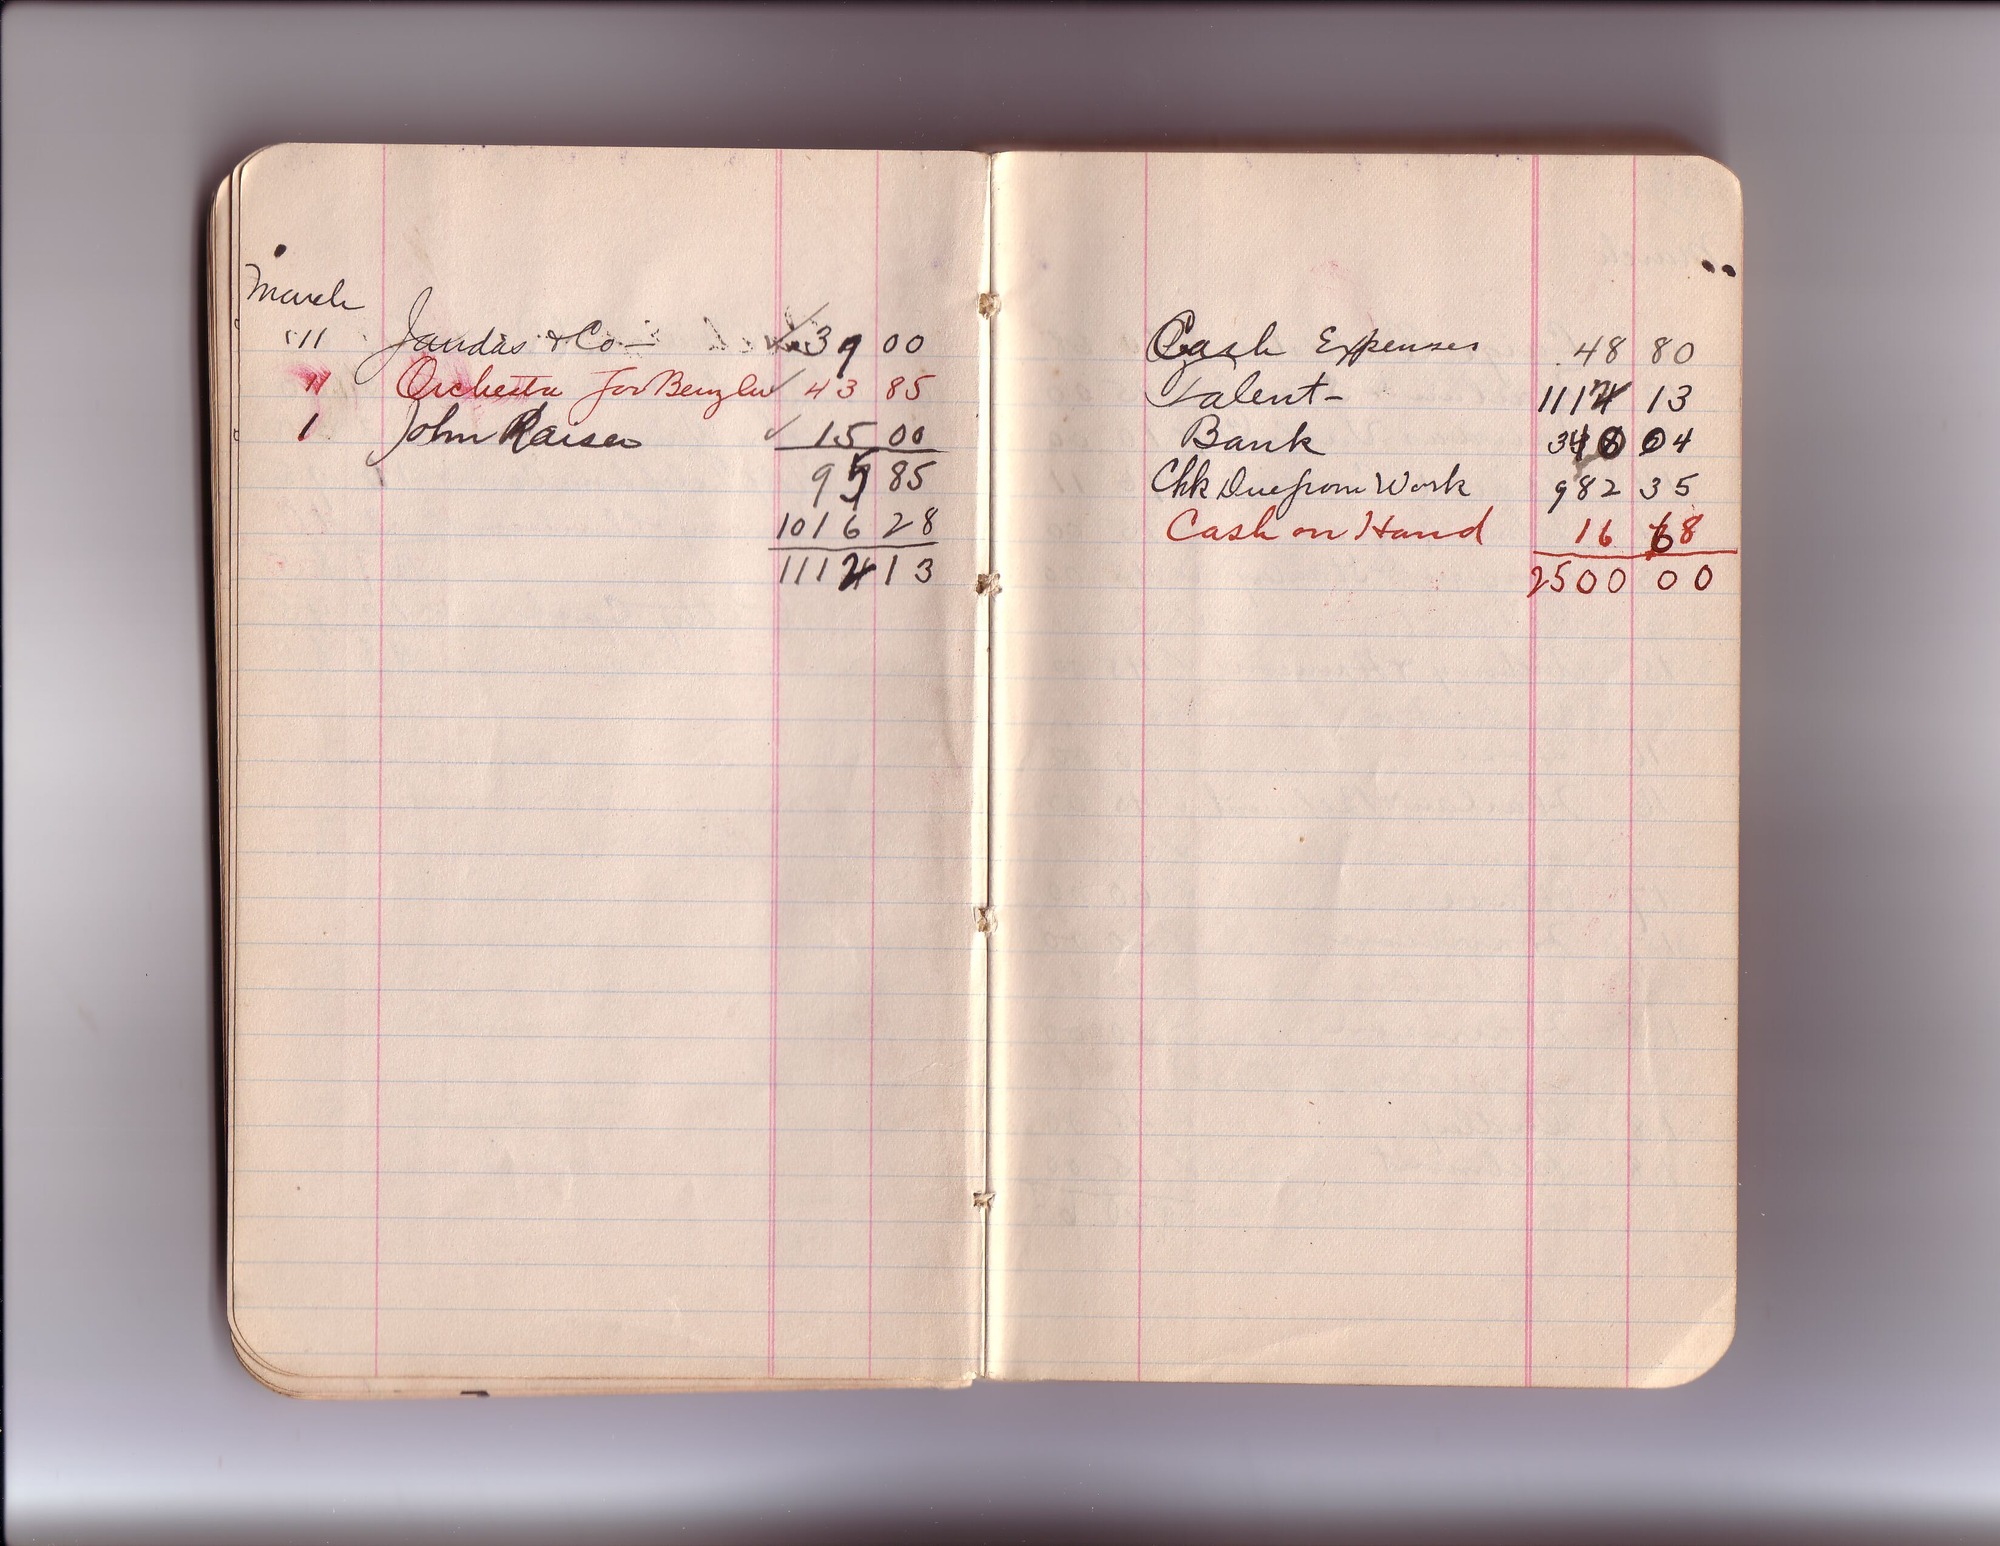 March
11 Jandas & Co - 39 00
11 Orchestra for Benzler 43 85
1 John Raiser 15 00
97 85
1016 28
1114 13
Cash Expenses 48 80
Talent - 1114 13
Bank 338 04
Chk Due from Work 982 35
Cash on Hand 16 68
2500 00